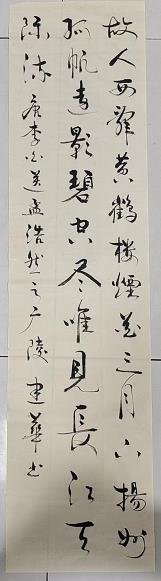 故人西辞黄鹤楼煙花三月下揚州
孤帆遠影碧空尽唯見長江天
际流 唐李白送孟浩然之广陵 建華书